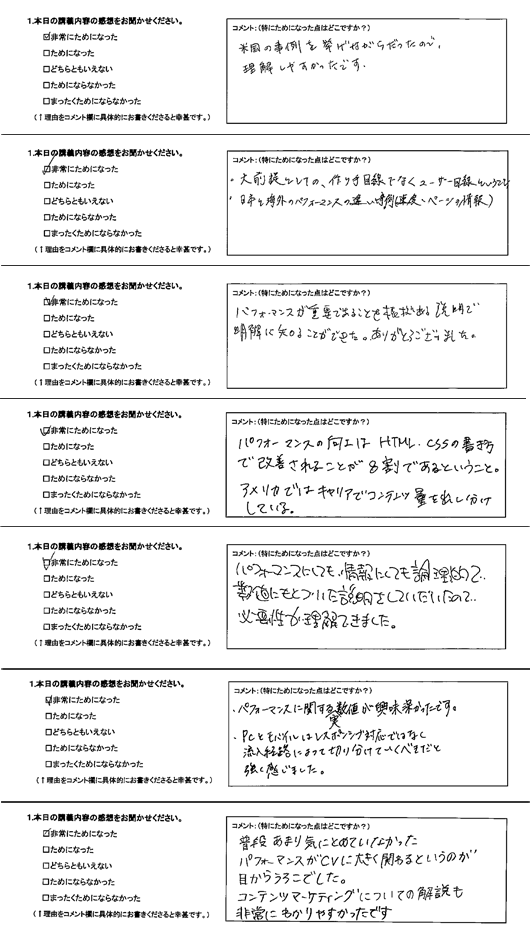 1.本日の講義内容の感想をお聞かせください。
☑非常にためになった
□ためになった
□どちらともいえない
□ためにならなかった
□まったくためにならなかった
(↑理由をコメント欄に具体的にお書きくださると幸甚です。)
コメント:(特にためになった点はどこですか?)
米国の事例を挙げながらだったので、
理解しやすかったです.
1.本日の講義内容の感想をお聞かせください。
☑非常にためになった
□ためになった
□どちらともいえない
□ためにならなかった
□まったくためにならなかった
(↑理由をコメント欄に具体的にお書きくださると幸甚です。)
コメント:(特にためになった点はどこですか?)
・大前提としての、作り手目線でなくユーザー目線という
・日本と海外のパフォーマンスの違い、事例(速度、ページの情報)
1.本日の講義内容の感想をお聞かせください。
☑非常にためになった
□ためになった
□どちらともいえない
□ためにならなかった
□まったくためにならなかった
(↑理由をコメント欄に具体的にお書きくださると幸甚です。)
コメント:(特にためになった点はどこですか?)
パフォーマンスが重要であることを根拠ある説明で
明解に知ることができた。ありがとうございました。
1.本日の講義内容の感想をお聞かせください。
☑非常にためになった
□ためになった
□どちらともいえない
□ためにならなかった
□まったくためにならなかった
(↑理由をコメント欄に具体的にお書きくださると幸甚です。)
コメント:(特にためになった点はどこですか?)
パフォーマンスの向上は HTML.CSSの書き方
で改善されることが8割であるということ。
アメリカではキャリアでコンテンツ量を出し分け
している。
1.本日の講義内容の感想をお聞かせください。
☑非常にためになった
□ためになった
□どちらともいえない
□ためにならなかった
□まったくためにならなかった
(↑理由をコメント欄に具体的にお書きくださると幸甚です。)
コメント:(特にためになった点はどこですか?)
パフォーマンスにしても、情報にしても論理的で、
数値にもとづいた説明をしていただいたので、
必要性が理解できました。
1.本日の講義内容の感想をお聞かせください。
☑非常にためになった
□ためになった
□どちらともいえない
□ためにならなかった
□まったくためにならなかった
(↑理由をコメント欄に具体的にお書きくださると幸甚です。)
コメント:(特にためになった点はどこですか?)
・パフォーマンスに関する実数値が興味深かったです。
・PCとモバイルはレスポンシブ対応ではなく
流入経路によって切り分けていくべきだと
強く感じました。
1.本日の講義内容の感想をお聞かせください。
☑非常にためになった
□ためになった
□どちらともいえない
□ためにならなかった
□まったくためにならなかった
(↑理由をコメント欄に具体的にお書きくださると幸甚です。)
コメント:(特にためになった点はどこですか?)
普段あまり気にとめていなかった
パフォーマンスがCVに大きく関わるというのが
目からうろこでした。
コンテンツマーケティングについての解説も
非常にわかりやすかったです